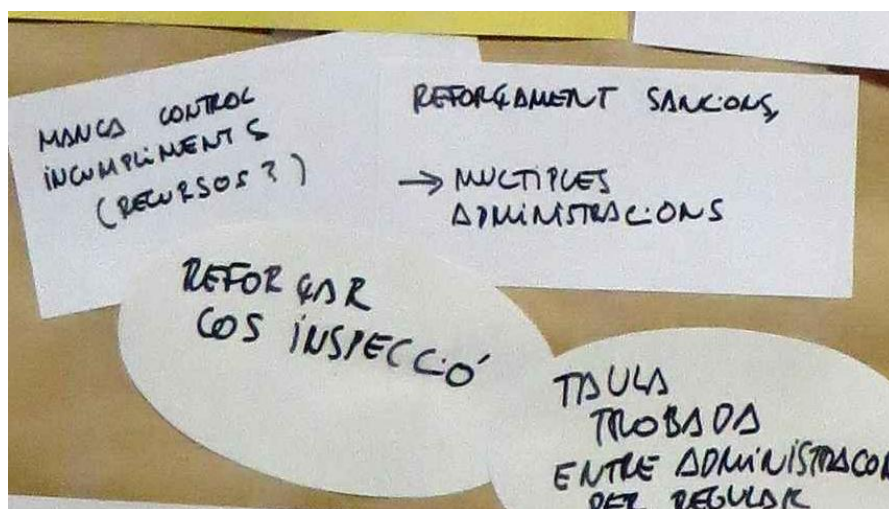 MANCA CONTROL
INCUMPLIMENTS
(RECURSOS?)
REFORÇAMENT SANCIONS,
→ MULTIPLES
ADMINISTRACIONS
REFORÇAR
COS INSPECCIÓ
TAULA
TROBADA
ENTRE ADMINISTRACON
PER REGULAR